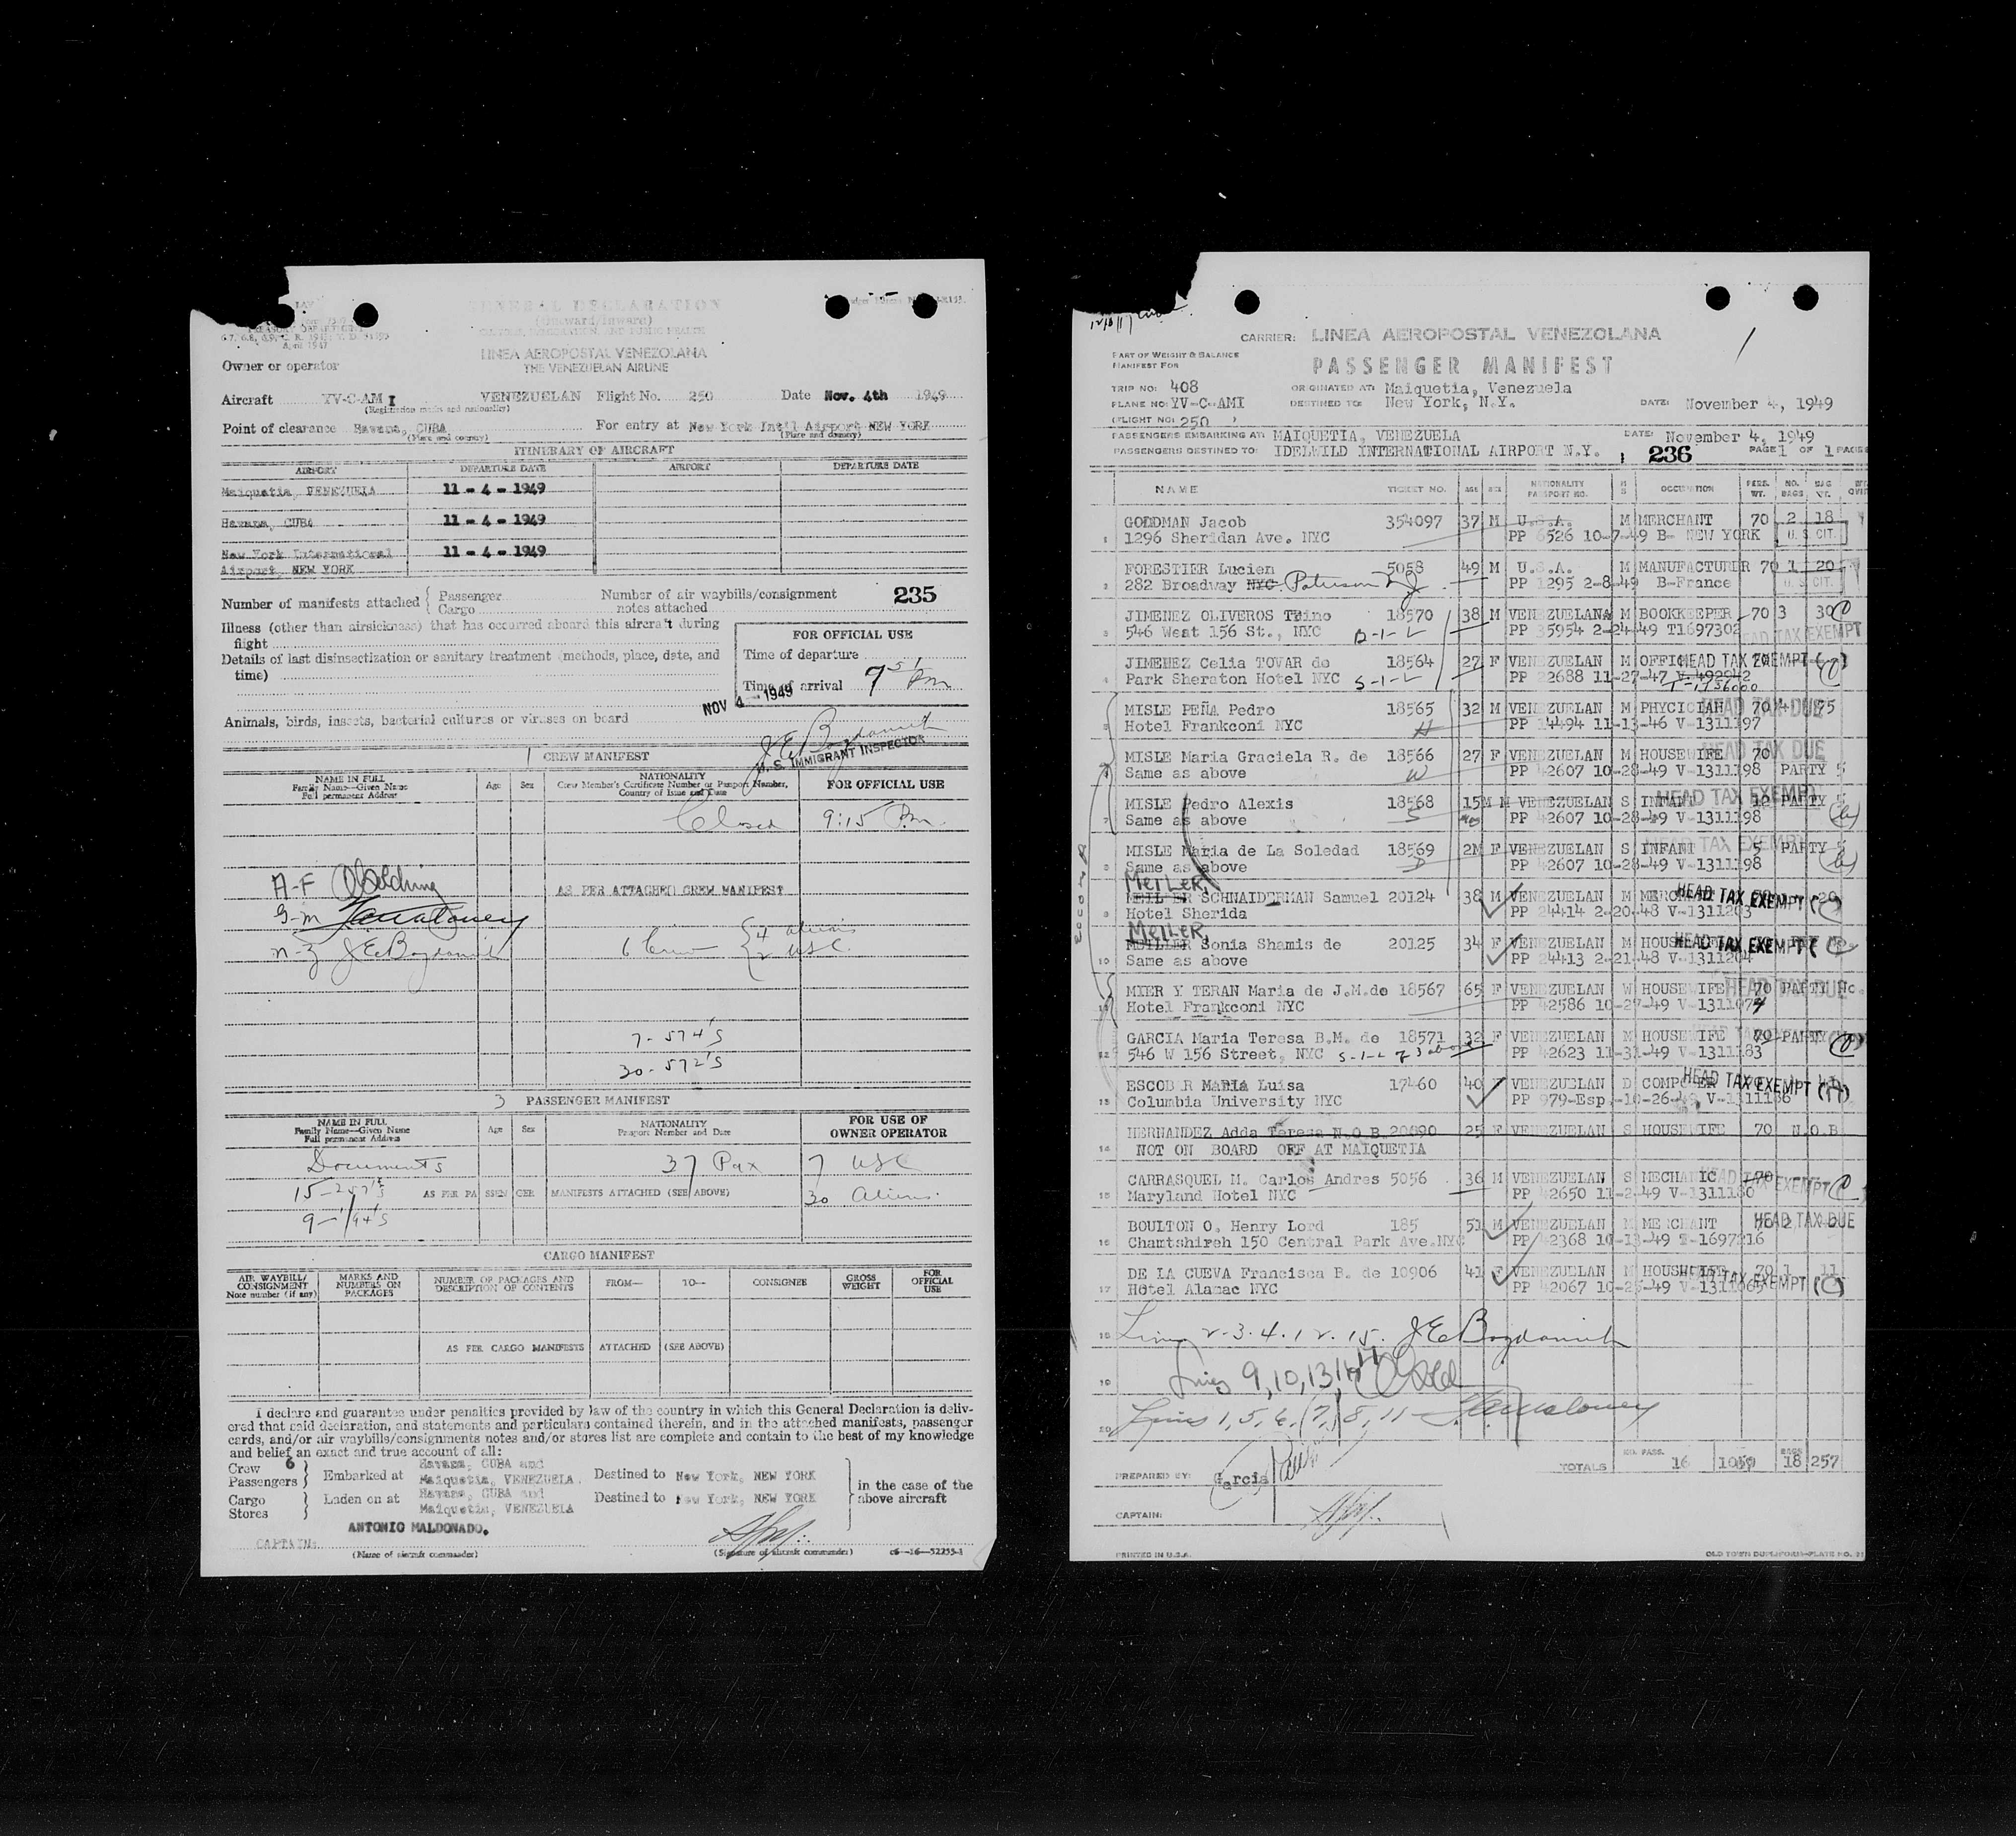 GENERAL DECLARATION
(Outward/Inward)
CUSTOMS, IMMIGRATION, AND PUBLIC HEALTH
TREASURY DEPARTMENT
April 1947
LINEA AEROPOSTAL VENEZOLANA
THE VENEZUELAN AIRLINE
Owner or operator
Aircraft YV-C-AMI VENEZUELAN Flight No. 250 Date Nov. 4th 1949
(Registration marks and nationality)
Point of clearance Havana, CUBA For entry at New York Int'l Airport NEW YORK
(Place and country) (Place and country)
ITINERARY OF AIRCRAFT
AIRPORT DEPARTURE DATE AIRPORT DEPARTURE DATE
Maiquetia, VENEZUELA 11-4-1949
Havana, CUBA 11-4-1949
New York International 11-4-1949
Airport, NEW YORK
Number of manifests attached { Passenger Number of air waybills/consignment 235
Cargo notes attached
Illness (other than airsickness) that has occurred aboard this aircraft during
flight
FOR OFFICIAL USE
Details of last disinsectization or sanitary treatment (methods, place, date, and
time)
Time of departure
Time of arrival 7 51 Pm
NOV 4 - 1949
Animals, birds, insects, bacterial cultures or viruses on board
J E Bogdanich
U. S. IMMIGRANT INSPECTOR
1 CREW MANIFEST
NAME IN FULL Age Sex NATIONALITY FOR OFFICIAL USE
Family Name—Given Name Crew Member's Certificate Number or Passport Number,
Full permanent Address Country of Issue and Date
Closed 9:15 Pm.
A-F
AS PER ATTACHED CREW MANIFEST
G-M
N-Z J E Bogdanich 6 Crew { 4 aliens
2 USC.
7-574's
30-572's
3 PASSENGER MANIFEST
NAME IN FULL Age Sex NATIONALITY FOR USE OF
Family Name—Given Name Passport Number and Date OWNER OPERATOR
Full permanent Address
Documents 37 Pax 7 USC
15-257's AS PER PASSENGER MANIFESTS ATTACHED (SEE ABOVE) 30 Aliens.
9-I94's
CARGO MANIFEST
AIR WAYBILL/ MARKS AND NUMBER OF PACKAGES AND FROM— TO— CONSIGNEE GROSS FOR
CONSIGNMENT NUMBERS ON DESCRIPTION OF CONTENTS WEIGHT OFFICIAL
Note number (if any) PACKAGES USE
AS PER CARGO MANIFESTS ATTACHED (SEE ABOVE)
I declare and guarantee under penalties provided by law of the country in which this General Declaration is deliv-
ered that said declaration, and statements and particulars contained therein, and in the attached manifests, passenger
cards, and/or air waybills/consignments notes and/or stores list are complete and contain to the best of my knowledge
and belief an exact and true account of all:
Crew 6 Havana, CUBA and
Passengers } Embarked at Maiquetia, VENEZUELA. Destined to New York, NEW YORK in the case of the
Cargo } Laden on at Havana, CUBA and Destined to New York, NEW YORK above aircraft
Stores Maiquetia, VENEZUELA
ANTONIO MALDONADO.
CAPTAIN:
(Name of aircraft commander) (Signature of aircraft commander) c6—16—52255-1
CARRIER: LINEA AEROPOSTAL VENEZOLANA
PART OF WEIGHT & BALANCE
MANIFEST FOR
PASSENGER MANIFEST
TRIP NO: 408 ORIGINATED AT: Maiquetia, Venezuela
PLANE NO: YV-C-AMI DESTINED TO: New York, N.Y. DATE: November 4, 1949
(FLIGHT NO: 250 )
PASSENGERS EMBARKING AT: MAIQUETIA, VENEZUELA DATE: November 4, 1949
PASSENGERS DESTINED TO: IDELWILD INTERNATIONAL AIRPORT N.Y. 236 PAGE 1 OF 1 PAGES
NAME TICKET NO. AGE SEX NATIONALITY PASSPORT NO. M S OCCUPATION PERS. WT. NO. BAGS BAG WT.
1 GOODMAN Jacob 354097 37 M U.S.A. M MERCHANT 70 2 18
1296 Sheridan Ave. NYC PP 6526 10-7-49 B- NEW YORK U. S. CIT.
2 FORESTIER Lucien 5058 49 M U.S.A. M MANUFACTURER 70 1 20
282 Broadway NYC. Paterson N J PP 1295 2-8-49 B-France U. S. CIT.
3 JIMENEZ OLIVEROS Trino 18570 38 M VENEZUELANA M BOOKKEEPER 70 3 30
546 West 156 St., NYC B-1-L PP 35954 2-24-49 T1697302 HEAD TAX EXEMPT
4 JIMENEZ Celia TOVAR de 18564 27 F VENEZUELAN M OFFIC HEAD TAX EXEMPT
Park Sheraton Hotel NYC S-1-L PP 22688 11-27-47 V-492942
T-1736000
5 MISLE PEÑA Pedro 18565 32 M VENEZUELAN M PHYCICIAN 70 HEAD TAX DUE
Hotel Frankconi NYC H PP 14494 11-13-46 V-1311197
6 MISLE Maria Graciela R. de 18566 27 F VENEZUELAN M HOUSEWIFE 70 HEAD TAX DUE
Same as above W PP 42607 10-28-49 V-1311198 PARTY 5
7 MISLE Pedro Alexis 18568 15M M VENEZUELAN S INFANT 12 PARTY 5 HEAD TAX EXEMPT
Same as above S PP 42607 10-28-49 V-1311198
8 MISLE Maria de La Soledad 18569 2M F VENEZUELAN S INFANT 5 PARTY 5 HEAD TAX EXEMPT
Same as above D PP 42607 10-28-49 V-1311198
MEILER
9 SCHNAIDERMAN Samuel 20124 38 M VENEZUELAN M HEAD TAX EXEMPT
Hotel Sherida PP 24414 2-20-48 V-1311203
MEILER
10 Sonia Shamis de 20125 34 F VENEZUELAN M HEAD TAX EXEMPT
Same as above PP 24413 2-21-48 V-1311204
11 MIER Y TERAN Maria de J.M.de 18567 65 F VENEZUELAN W HOUSEWIFE 70 HEAD TAX DUE
Hotel Frankconi NYC PP 42586 10-27-49 V-1311074
12 GARCIA Maria Teresa B.M. de 18571 32 F VENEZUELAN M HOUSEWIFE 70 PARTY
546 W 156 Street, NYC S-1-L of 3 above PP 42623 11-31-49 V-1311183
13 ESCOBAR MARIA Luisa 17460 40 F VENEZUELAN D HEAD TAX EXEMPT
Columbia University NYC PP 979-Esp.-10-26-49 V-1311186
14 HERNANDEZ Adda Teresa N.O.B. 20090 25 F VENEZUELAN S HOUSEWIFE 70 N.O.B
NOT ON BOARD OFF AT MAIQUETIA
15 CARRASQUEL M. Carlos Andres 5056 36 M VENEZUELAN S MECHANIC 70 HEAD TAX EXEMPT
Maryland Hotel NYC PP 42650 11-2-49 V-1311180
16 BOULTON O. Henry Lord 185 51 M VENEZUELAN M MERCHANT HEAD TAX DUE
Chamtshireh 150 Central Park Ave.NYC PP 42368 10-13-49 T-1697216
17 DE LA CUEVA Francisca B. de 10906 41 F VENEZUELAN M HOUSEWIFE 70 1 11
Hotel Alamac NYC PP 42067 10-25-49 V-1311065 HEAD TAX EXEMPT
18 Lines 2-3.4.12.15. J E Bogdanich
19 Lines 9,10,13,16,17
20 Lines 1,5,6,(7,)8,11
TOTALS NO. PASS. 16 1059 BAGS 18 257
PREPARED BY: Garcia
CAPTAIN:
PRINTED IN U.S.A. OLD TOWN DUPLIFORM—PLATE NO.